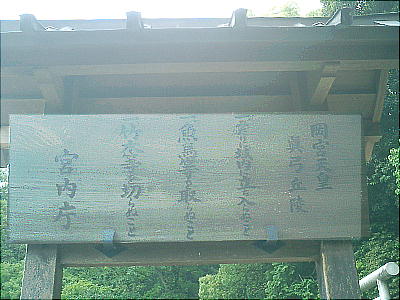 岡宮天皇
眞弓丘陵
一みだりに域内に立入らぬこと
一魚鳥等を取らぬこと
一竹木等を切らぬこと
宮内庁